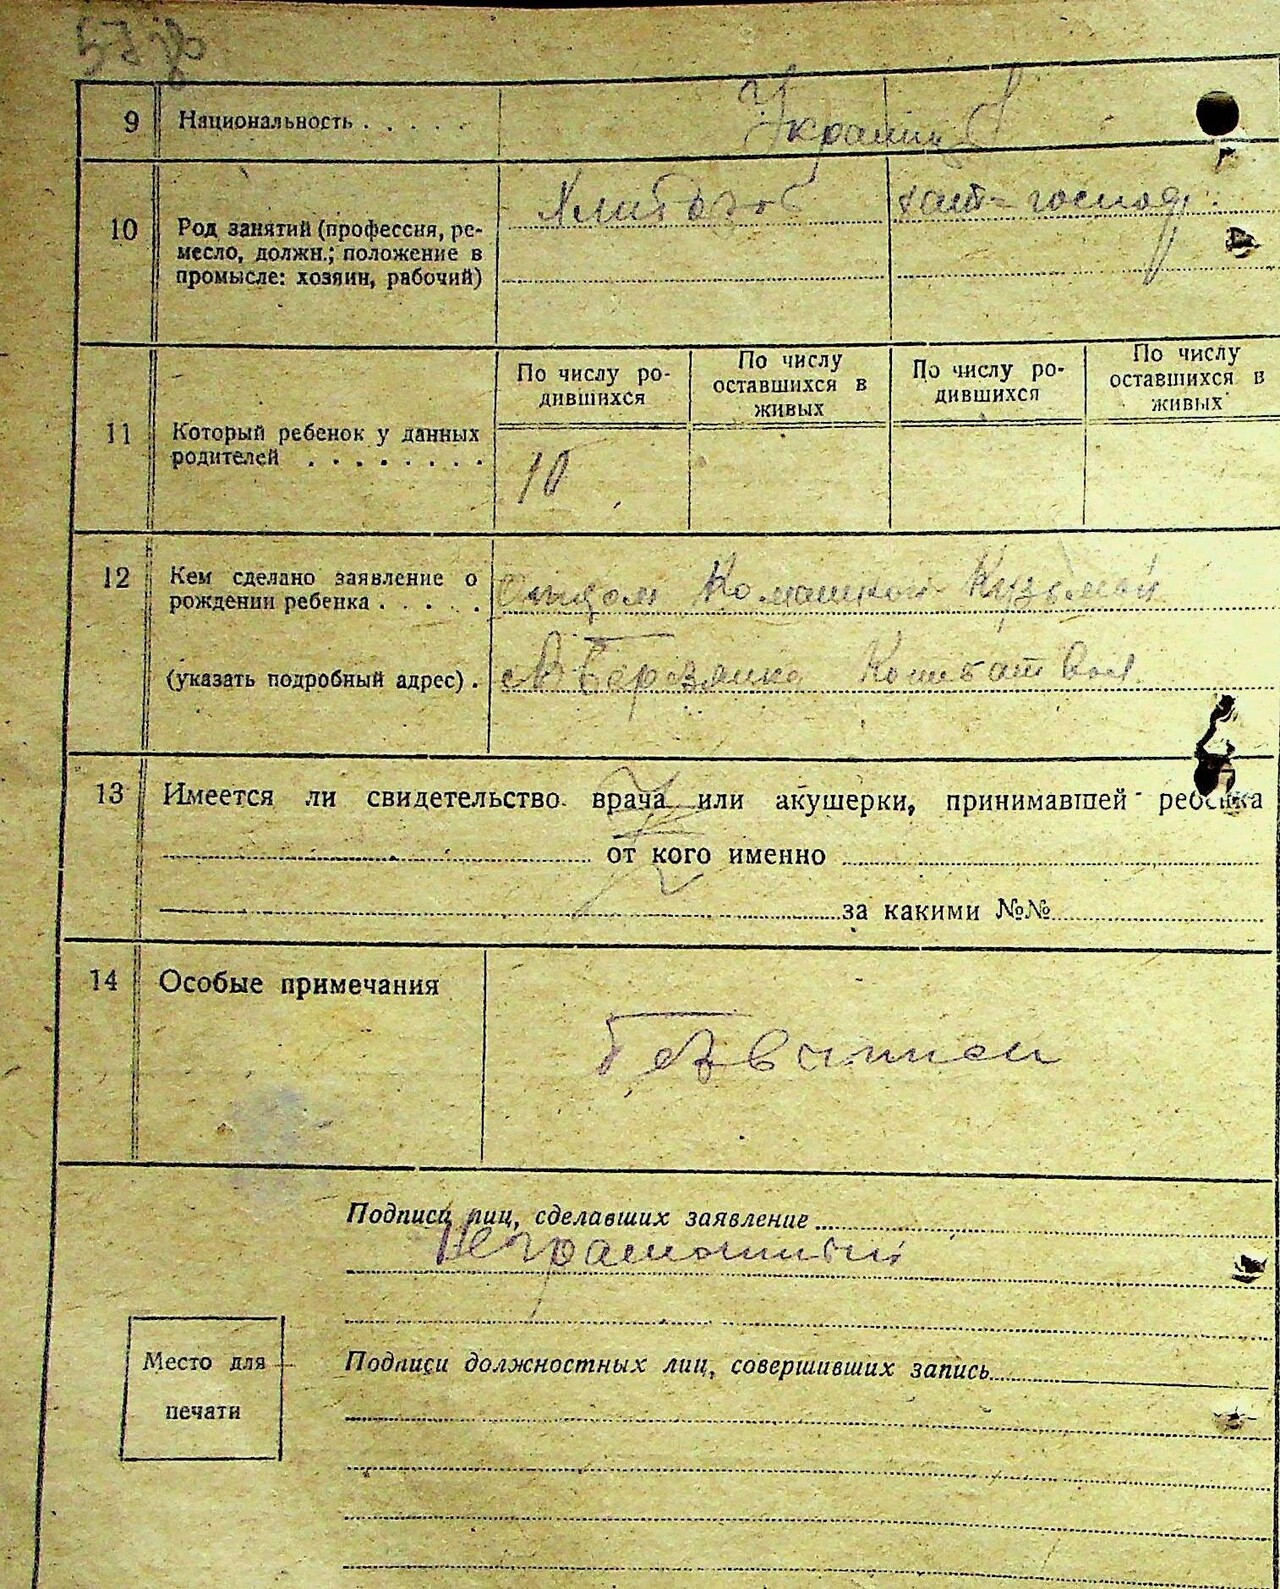 9 Национальность . . . . . Украинц
10 Род занятий (профессия, ре-
месло, должн.; положение в
промысле: хозяин, рабочий)
Хлибороб хат-господ.
11 Который ребенок у данных
родителей . . . . . . . .
По числу ро-
дившихся
По числу
оставшихся в
живых
По числу ро-
дившихся
По числу
оставшихся в
живых
10
12 Кем сделано заявление о
рождении ребенка . . . . .
Комашкой Кузьмой
(указать подробный адрес) .
Березянка
13 Имеется ли свидетельство врача или акушерки, принимавшей ребенка
от кого именно
за какими №№
14 Особые примечания
Подписи лиц, сделавших заявление
Неграмотный
Место для
печати
Подписи должностных лиц, совершивших запись